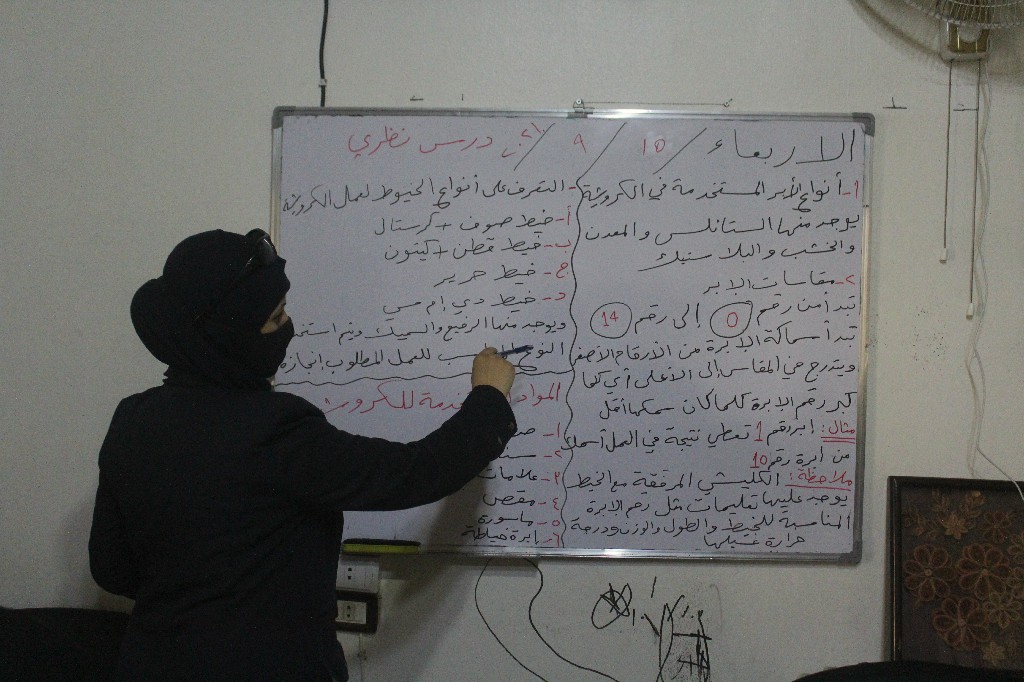 الاربعاء / 15 / ٩ / ٢٠٢١ درس نظري
١- أنواع الأبر المستخدمة في الكروشة
يوجد منها الستانلس والمعدن
والخشب والبلاستيك
٢- مقاسات الابر
تبدأ من رقم 0 إلى رقم 14
تبدأ سماكة الابرة من الأرقام الأصغر
ويتدرج في المقاس إلى الأعلى أي كلما
كبر رقم الابرة كلما كان سمكها أقل
مثال: إبر رقم 1 تعطي نتيجة في العمل أسمك
من أبرة رقم 10
ملاحظة: الكليشي المرفقة مع الخيط
يوجد عليها تعليمات مثل رقم الابرة
المناسبة للخيط والطول والوزن ودرجة
حرارة غسيلها
- التعرف على أنواع الخيوط لعمل الكروشة
أ- خيط صوف + كرستال
ب- خيط قطن + كيتون
ج- خيط حرير
د- خيط دي إم سي
ويوجد منها الرفيع والسميك ويتم
النوع للعمل المطلوب إنجازه
المواد للكروش
١-
٢-
٣- علامات
٤- مقص
٥- ماسورة
٦- إبرة خياطة